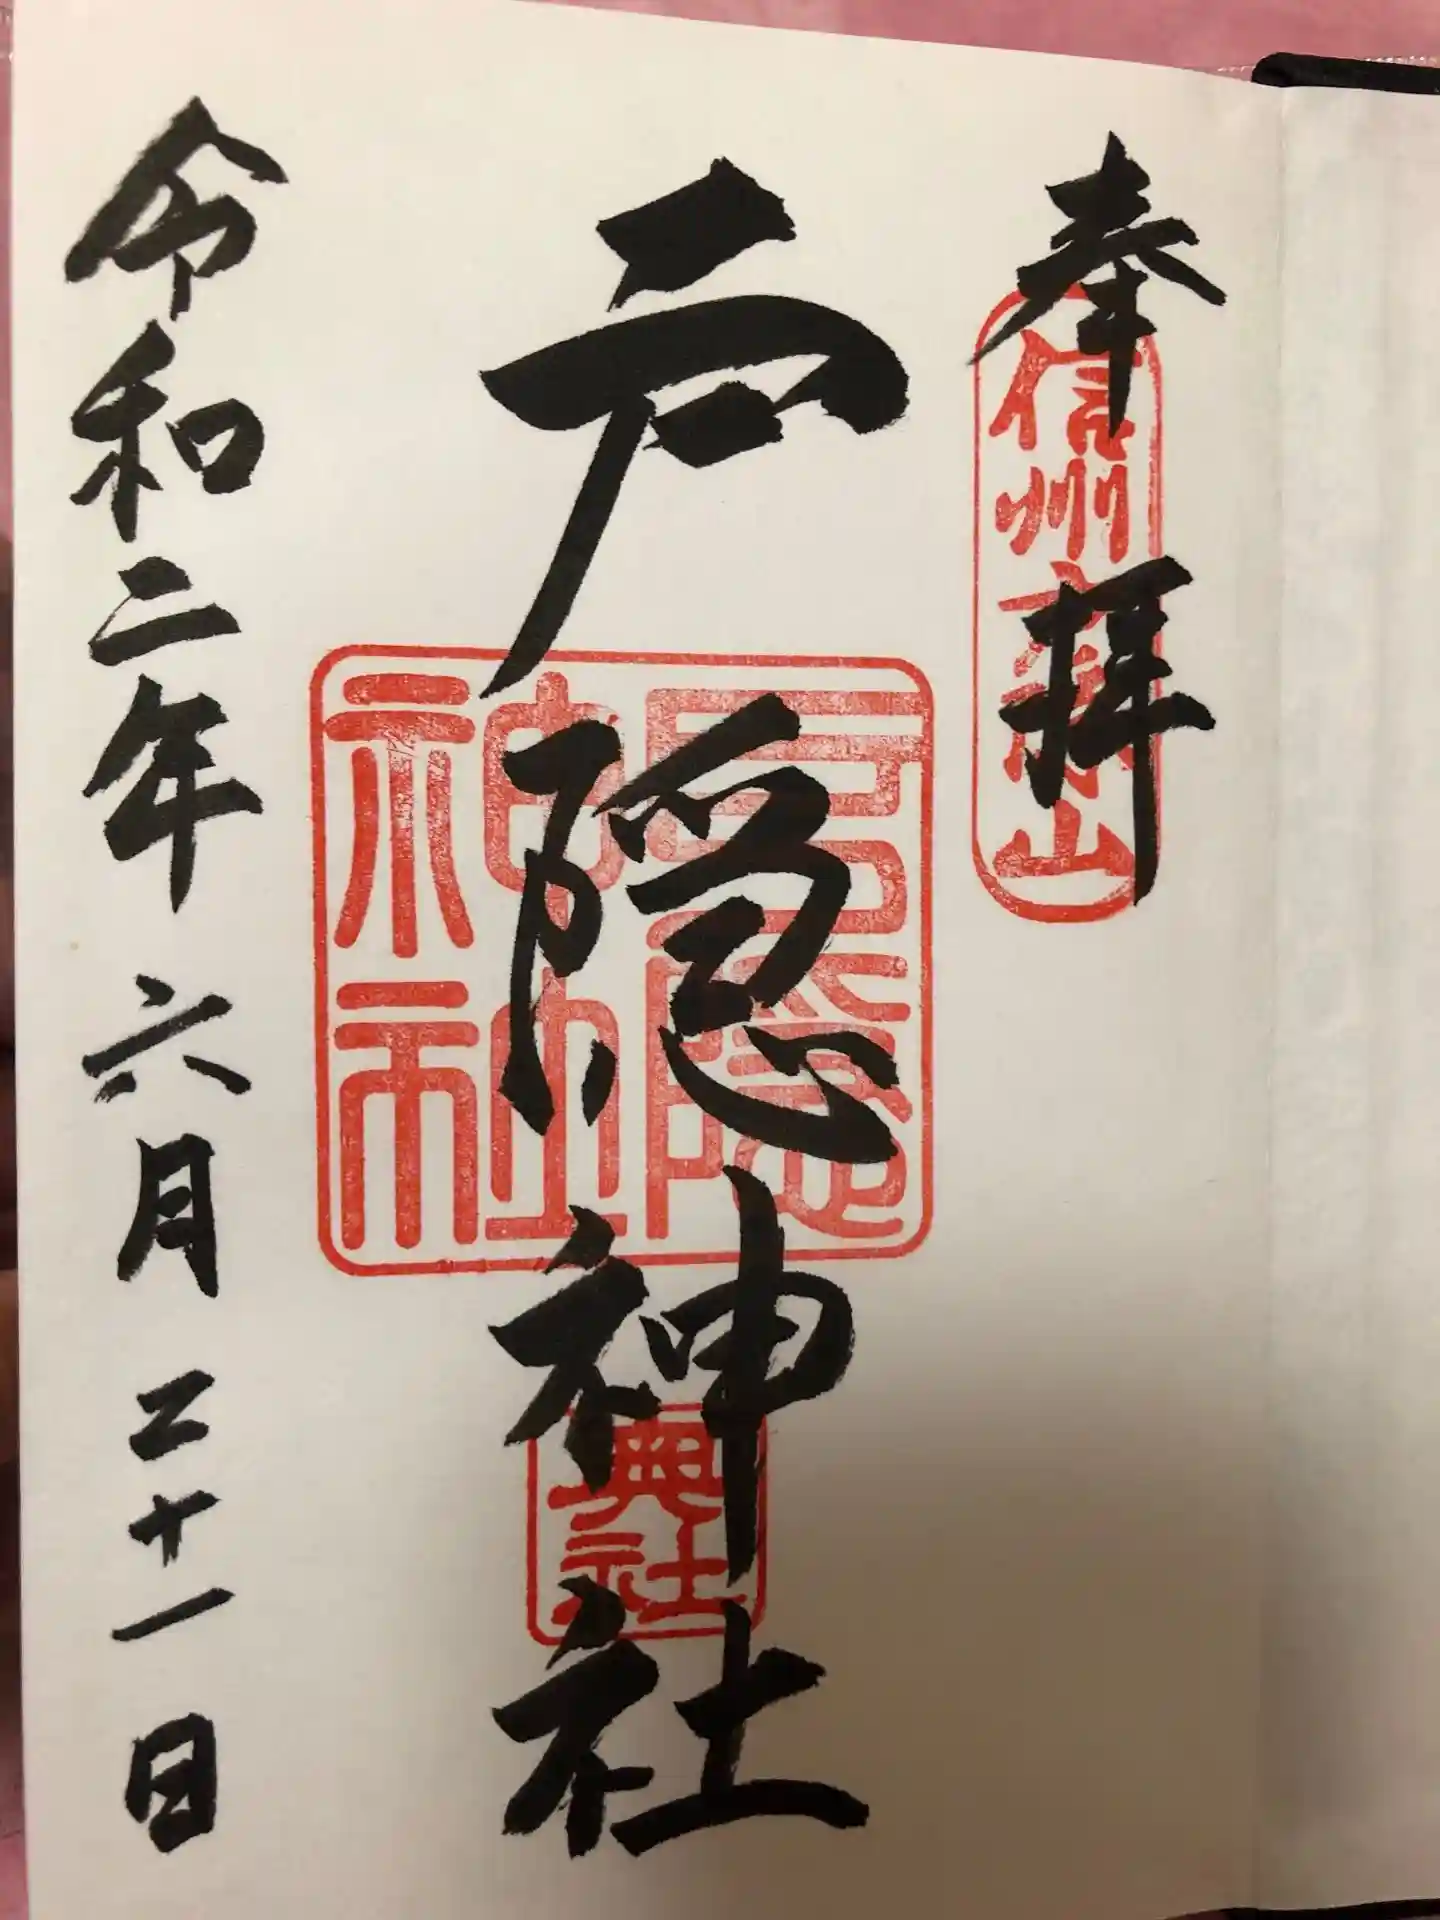 奉拝
信州
山
戸隠神社
戸隠
神社
奥社
令和二年六月二十一日